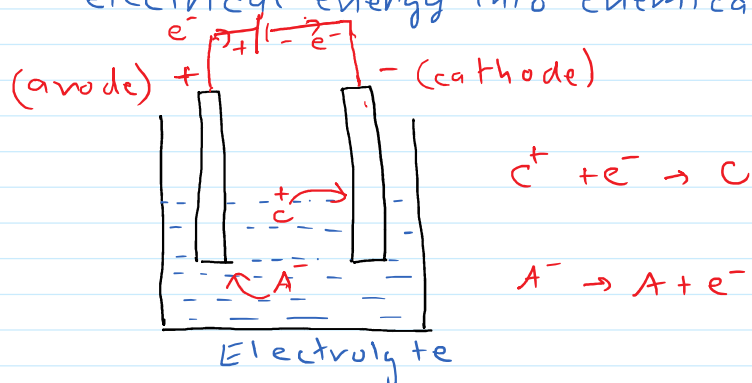 electrical energy into chemica
e⁻ + - e⁻
(anode) + - (cathode)
C⁺ + e⁻ → C
C⁺
A⁻
A⁻ → A + e⁻
Electrolyte